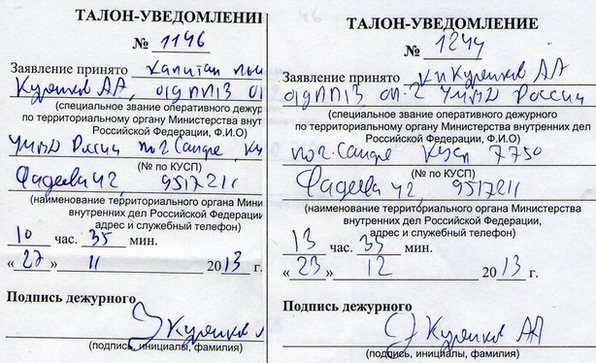 ТАЛОН-УВЕДОМЛЕНИ
№ 1146
Заявление принято капитан
АА,
(специальное звание оперативного дежур
по территориальному органу Министерства внут
Российской Федерации, Ф.И.О)
УМВД России по г. Самаре
(№ по КУСП)
Фадеева 42, 9517211
(наименование территориального органа Мини
внутренних дел Российской Федерации
адрес и служебный телефон)
10 час. 35 мин.
« 27 » 11 2013 г.
Подпись дежурного
(подпись, инициалы, фамилия)
ТАЛОН-УВЕДОМЛЕНИЕ
№ 1244
Заявление принято АА
оп-2 УМВД России
(специальное звание оперативного дежурного
по территориальному органу Министерства внутренних дел
Российской Федерации, Ф.И.О)
по г. Самаре КУСП 7750
(№ по КУСП)
Фадеева 42, 9517211
(наименование территориального органа Министерства
внутренних дел Российской Федерации,
адрес и служебный телефон)
13 час. 35 мин.
« 23 » 12 2013 г.
Подпись дежурного АА
(подпись, инициалы, фамилия)